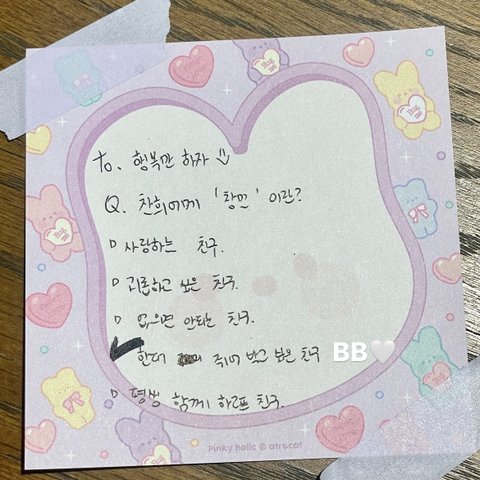 to. 행복만 하자
Q. 찬희에게 '창민' 이란?
사랑하는 친구.
괴롭히고 싶은 친구.
없으면 안되는 친구.
한대 쥐어 박고 싶은 친구
BB
평생 함께 하고픈 친구.
Pinky holic © atrocat